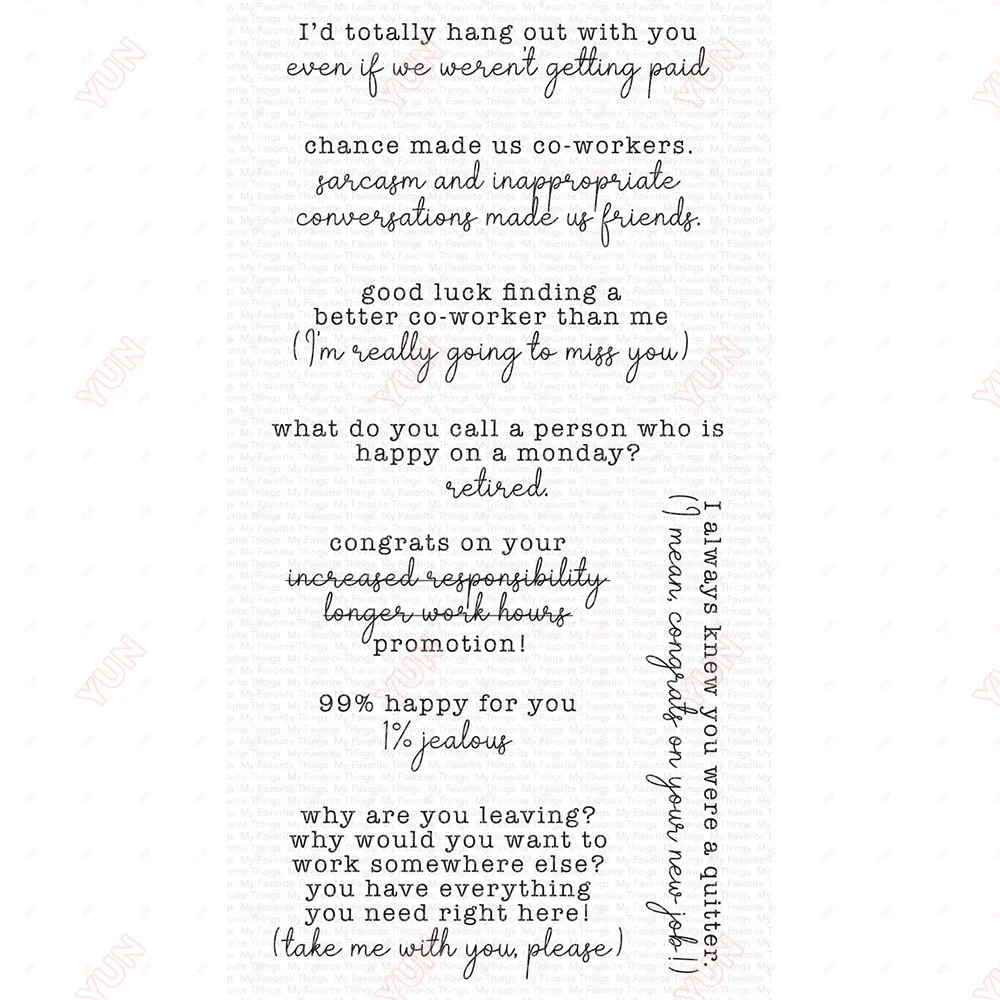 I'd totally hang out with you
even if we weren't getting paid
chance made us co-workers.
sarcasm and inappropriate
conversations made us friends.
good luck finding a
better co-worker than me
(I'm really going to miss you)
what do you call a person who is
happy on a monday?
retired.
congrats on your
increased responsibility
longer work hours
promotion!
99% happy for you
1% jealous
why are you leaving?
why would you want to
work somewhere else?
you have everything
you need right here!
(take me with you, please)
I always knew you were a quitter.
(I mean, congrats on your new job!)
YUN
My Favorite Things